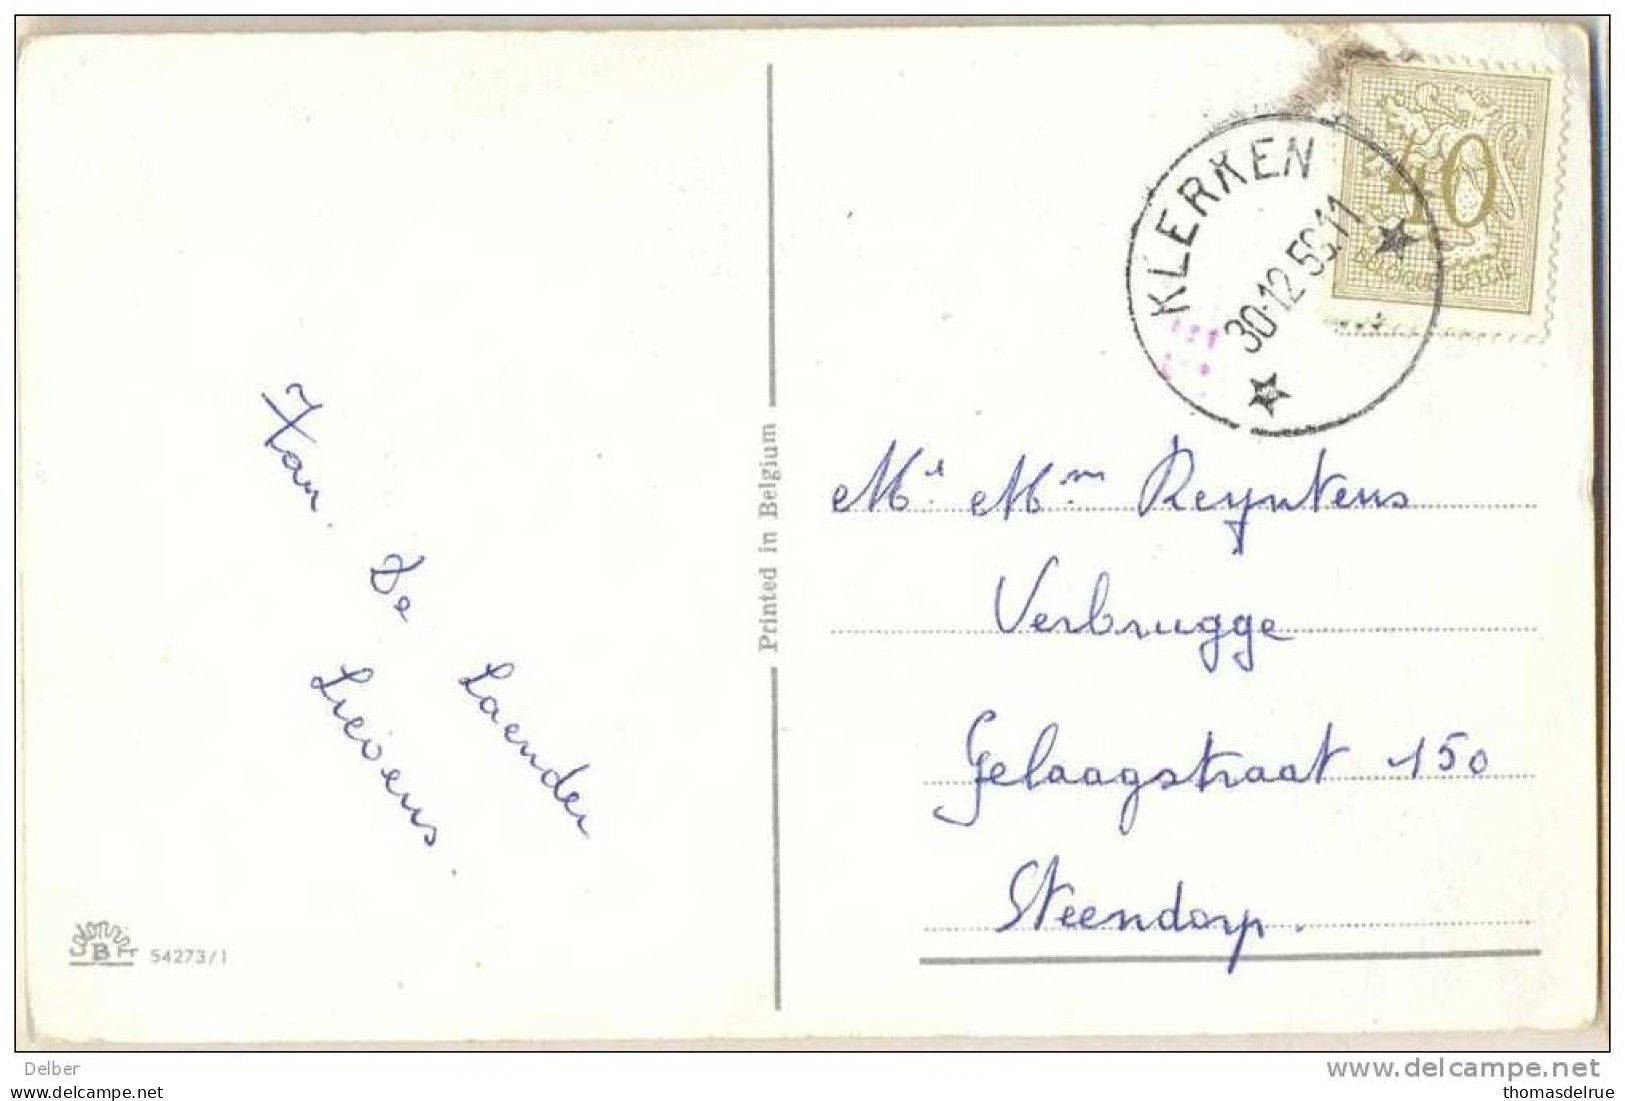 KLERKEN
30-12 56.11
40
BELGIQUE BELGIE
Printed in Belgium
Mr. Mm Reyntens
Verbrugge
Gelaagstraat 150
Steendorp.
De
Laender
Lievens.
B
54273/1
Delber
www.delcampe.net
thomasdelrue